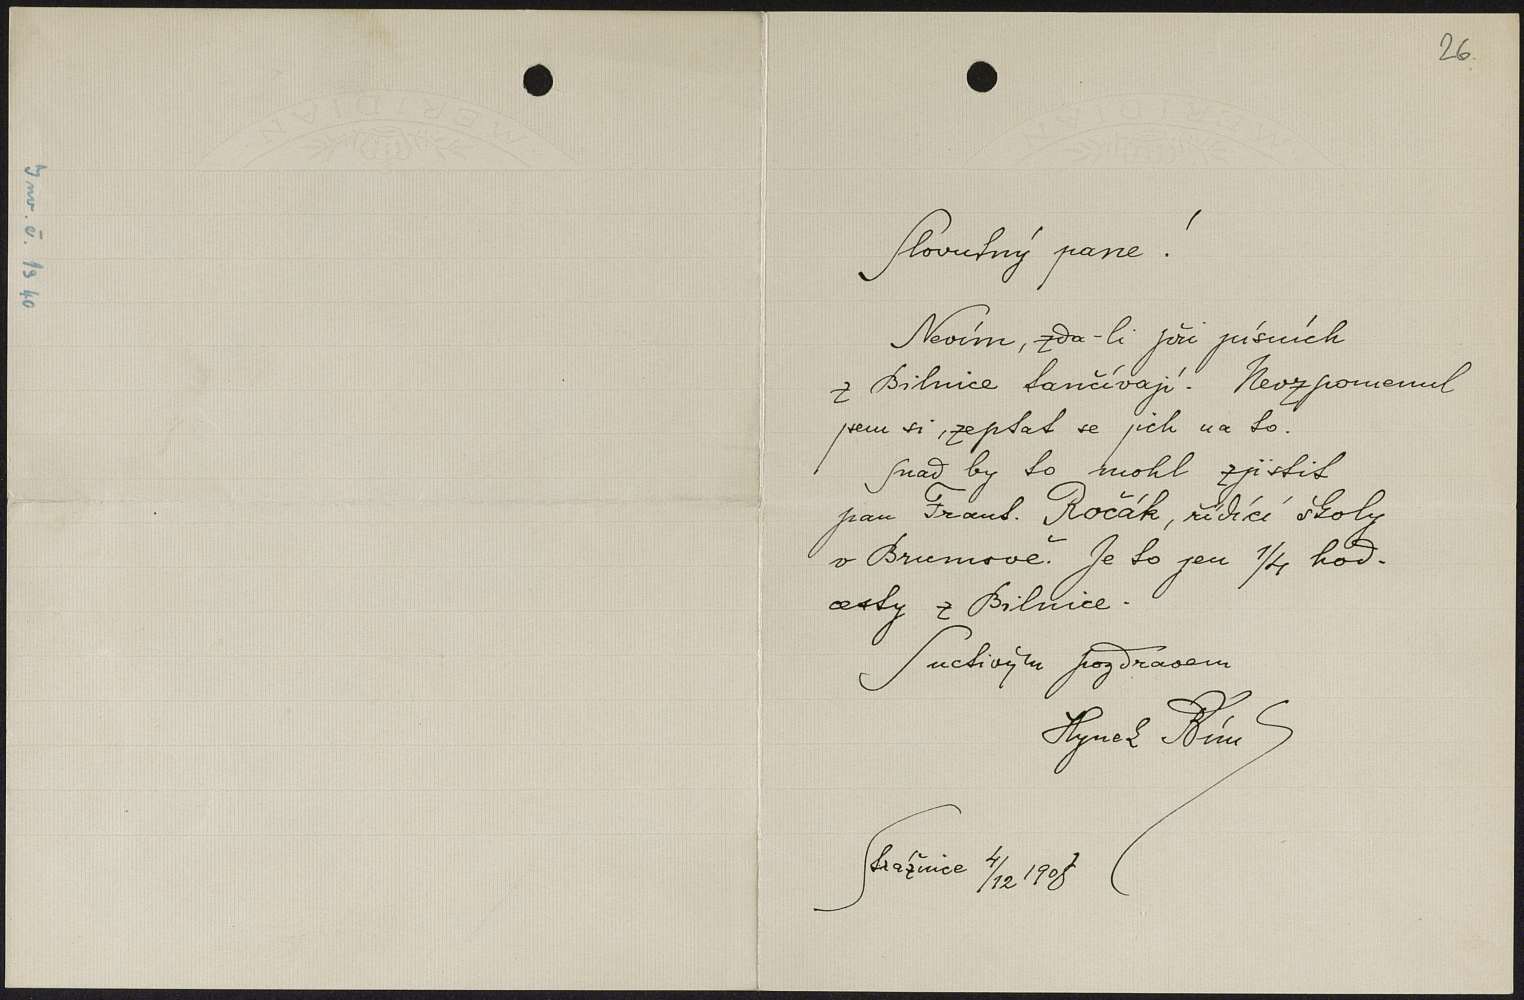 26.
MERIDIAN
MERIDIAN
Slovutný pane!
Nevím, zda-li při písních
z Bilnice tančívají. Nevzpomenul
jsem si, zeptat se jich na to.
Snad by to mohl zjistit
pan Frant. Ročák, řídící školy
v Brumově. Je to jen 1/4 hod.
cesty z Bilnice.
S uctivým pozdravem
Hynek Bím
Strážnice 4/12 1908